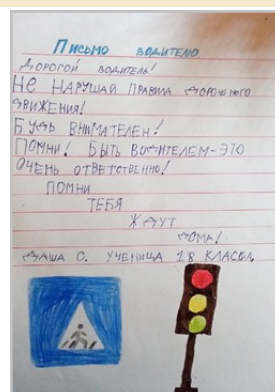 Письмо водителю
Дорогой водитель!
Не нарушай правила дорожного
движения!
Будь внимателен!
Помни! Быть водителем - это
очень ответственно!
Помни
тебя
ждут
дома!
Даша С. ученица 1В класса.